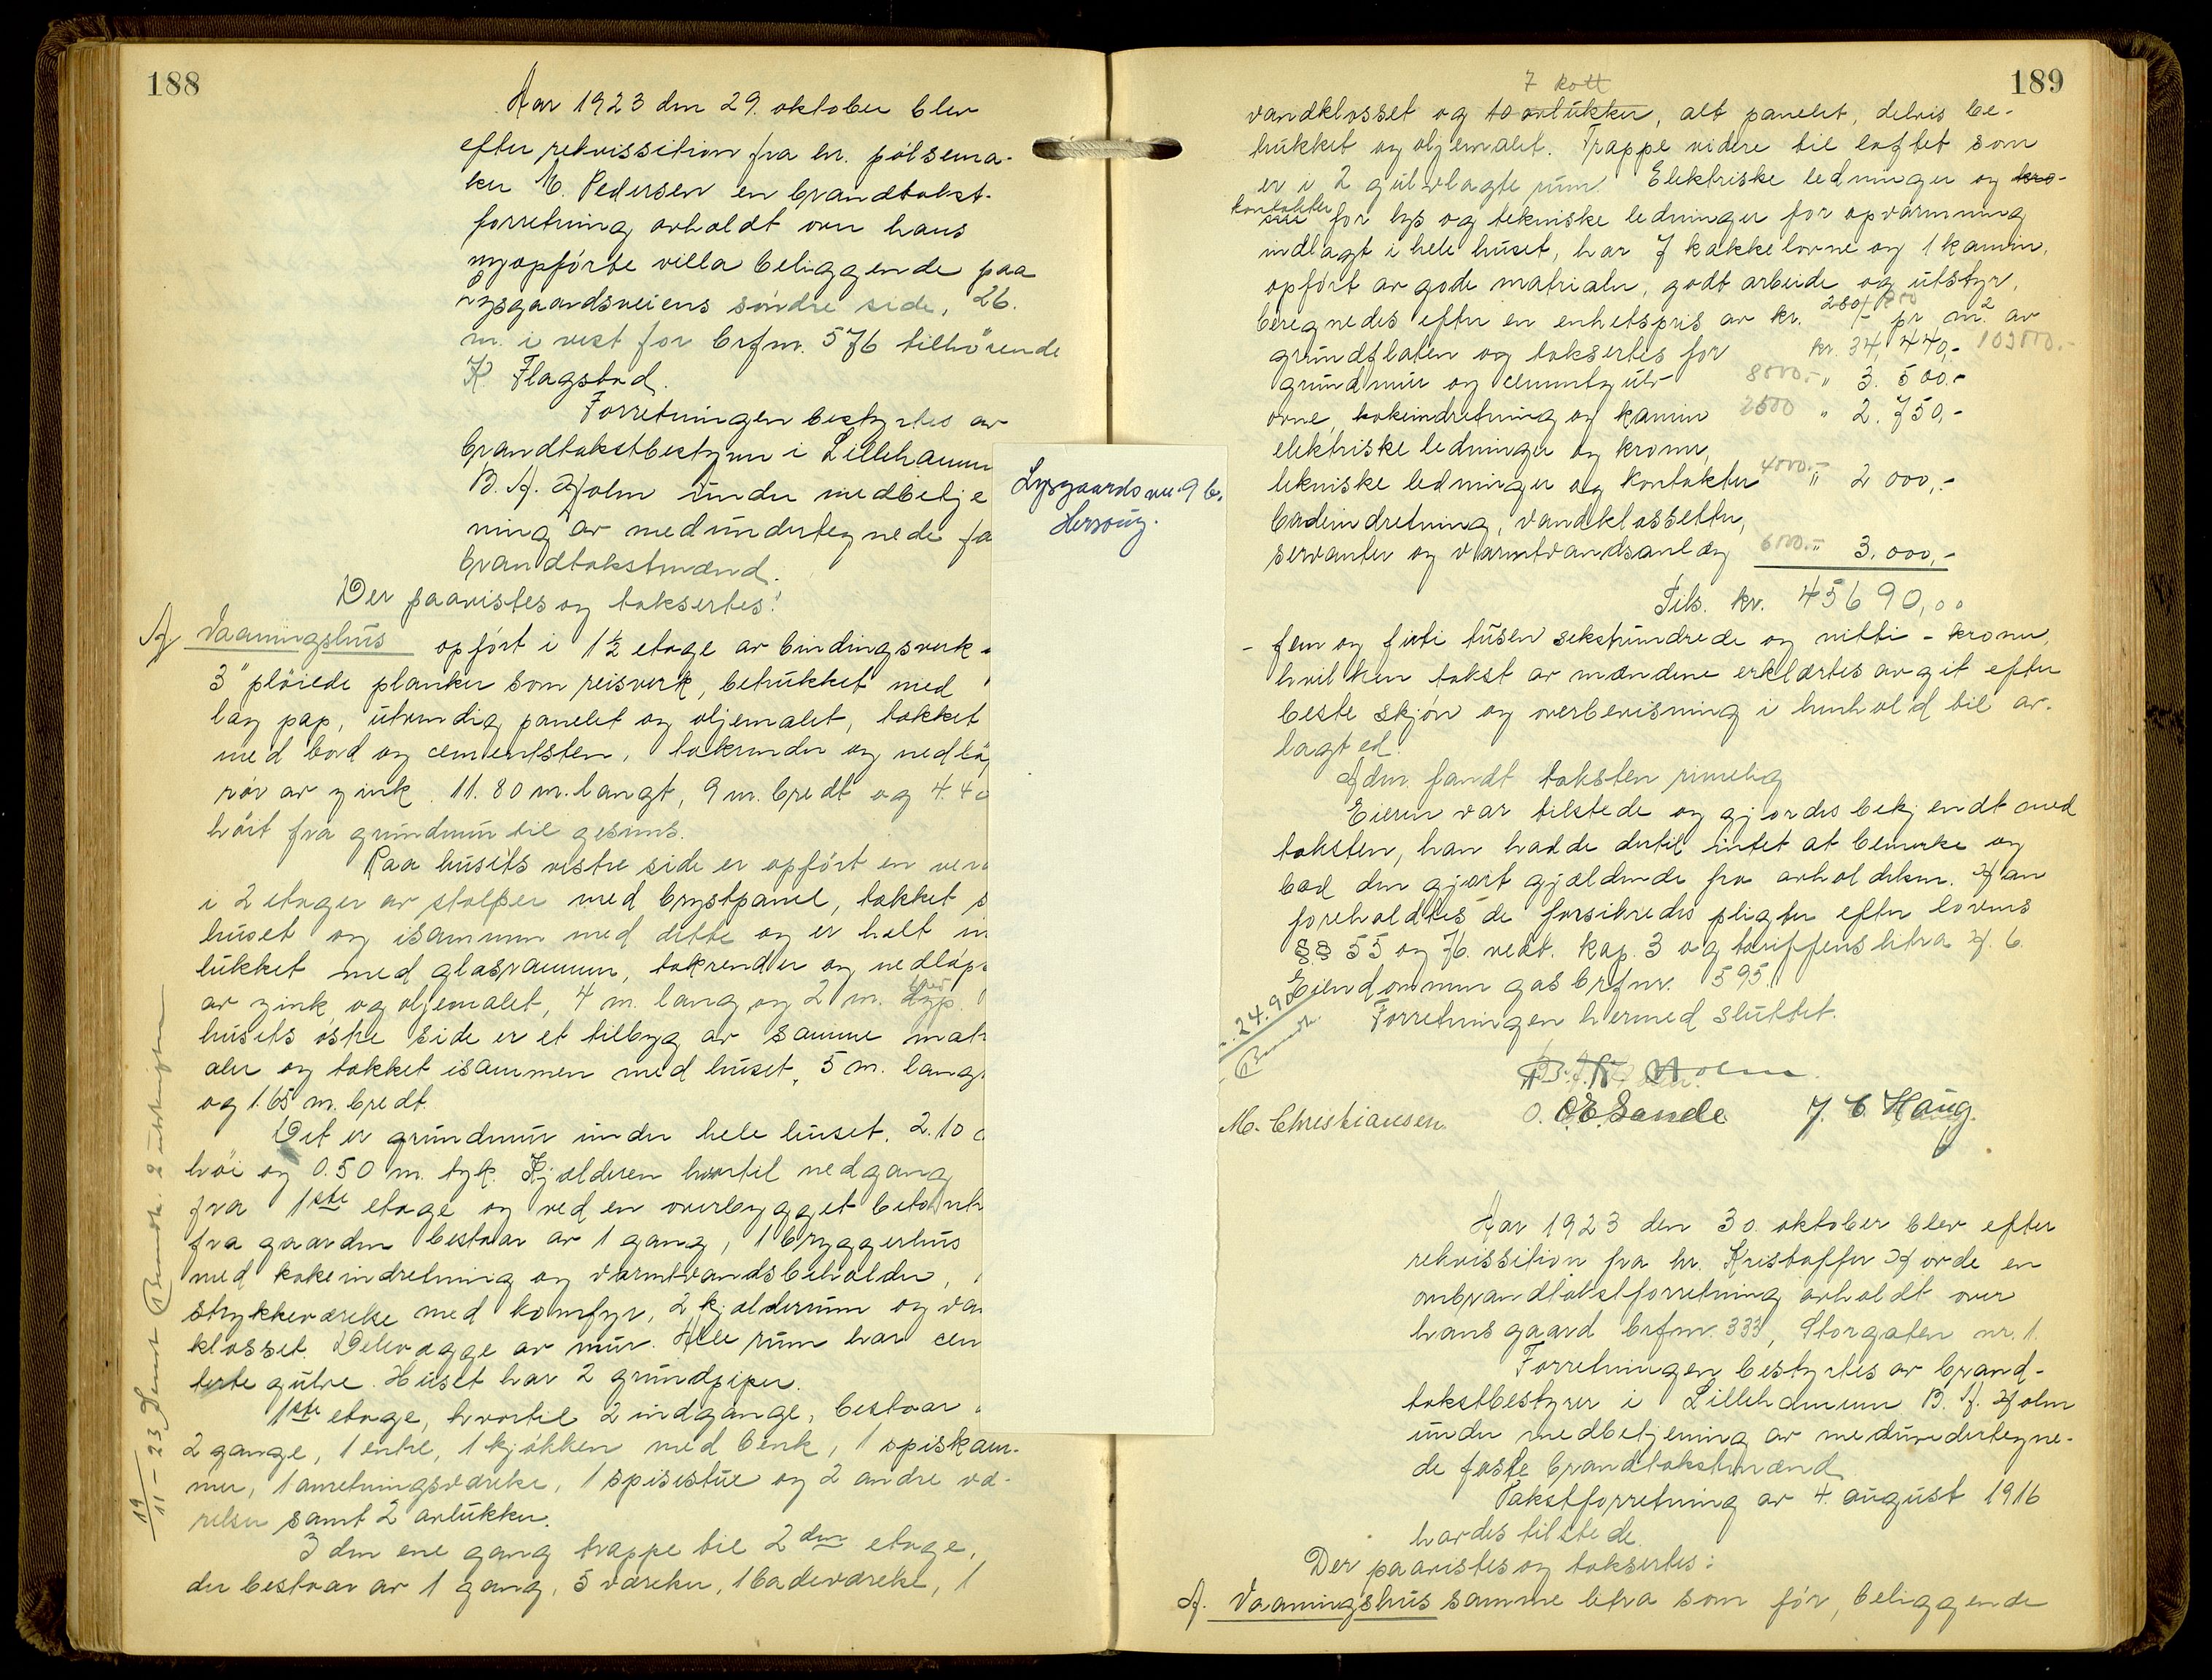 188
Aar 1923 den 29. oktober blev
efter rekvissition fra hr. pølsema-
ker M. Pedersen en brandtakst-
forretning avholdt over hans
nyopførte villa beliggende paa
Lysgaardsveiens søndre side, 26.
m. i vest for brfnr. 576 tilhörende
K. Flagstad.
Forretningen bestyrtes av
brandtakstbestyrer i Lillehamm
B. A. Holm under medbetje
ning av medundertegnede fa
brandtakstmænd.
Der paavistes og taksertes:
A. Vaaningshus opført i 1½ etage av bindingsverk
3" pløiede planker som reisverk, betrukket med
lag pap, utvendig panelet og oljemalet, takket
med bord og cementsten, takrender og nedlø
rør av zink. 11.80 m. langt, 9 m. bredt og 4.40
høit fra grundmur til gesims.
Paa husets vestre side er opført en vera
i 2 etager av stolper med brystpanel, takket s
huset og isammen med dette og er helt in
lukket med glasrammer, takrender og nedløps
av zink og oljemalet, 4 m. lang og 2 m. dyp. bred
husets østre side er et tilbyg av samme mat
aler og takket isammen med huset, 5 m. lang
og 1.65 m. bredt.
Det er grundmur under hele huset, 2.10
høi og 0.50 m. tyk. Kjælderen hvortil nedgang
fra 1ste etage og ved en overbygget betontr
fra gaarden bestaar av 1 gang, 1 bryggerhus
med kokeindretning og varmtvandsbeholder,
strykkeværelse med komfyr, 2 kjælderrum og va
klosset. Delevægge av mur. Alle rum har cem
terte gulve. Huset har 2 grundpiper.
1ste etage, hvortil 2 indgange, bestaar
2 gange, 1 entre, 1 kjøkken med benk, 1 spiskam-
mer, 1 anretningsværelse, 1 spisestue og 2 andre væ-
relser samt 2 avlukker.
I den ene gang trappe til 2den etage,
der bestaar av 1 gang, 5 værelser, 1 badeværelse, 1
19/11 - 23 Sendt Brandk. 2 utskrifter
Lysgaardsvei. 9 b.
Hersoug.
189
7 kott
vandklosset og 10 avlukker, alt panelet, delvis be-
trukket og oljemalet. Trappe videre til loftet som
er i 2 gulvlagte rum. Elektriske ledninger og kro-
kontakter
ner for lys og tekniske ledninger for opvarmning
indlagt i hele huset, har 7 kakkelovne og 1 kamin,
opført av gode matrialer, godt arbeide og utstyr,
beregnedes efter en enhetspris av kr. 280/- pr m² av
grundflaten og taksertes for kr. 34,440,- 103000.-
grundmur og cementgulv 8000.- " 3.500.-
ovne, kokeindretning og kamin 2500 " 2.750,-
elektriske ledninger og kroner,
tekniske ledninger og kontakter 4000.- " 2 000,-
badeindretning, vandklossetter,
servanter og varmtvandsanlæg 6000.- " 3.000,-
Tils. kr. 45690,00
- fem og firti tusen sekshundrede og nitti - kroner,
hvilken takst av mændene erklærtes avgit efter
beste skjøn og overbevisning i henhold til av-
lagt ed.
Adm. fandt taksten rimelig
Eieren var tilstede og gjordes bekjendt med
taksten, han hadde dertil intet at bemerke og
bad den gjort gjældende fra avholdelsen. Han
foreholdtes de forsikredes pligter efter lovens
§§ 55 og 76. vedt. kap. 3 og tariffens litra H. 6.
Eiendommen gas brfnr. 595.
Forretningen hermed sluttet.
24.90
Brandk.
B. A. Holm.
M. Christiansen O. E. Sande J. C. Haug.
Aar 1923 den 30. oktober blev efter
rekvissition fra hr. Kristoffer Horde en
ombrandtakstforretning avholdt over
hans gaard brfnr. 333, Storgaten nr. 1.
Forretningen bestyrtes av brand-
takstbestyrer i Lillehammer B. A. Holm
under medbetjening av medundertegne-
de faste brandtakstmænd
Takstforretning av 4. august 1916
havdes tilstede.
Der paavistes og taksertes:
A. Vaaningshus samme litra som før, beliggende